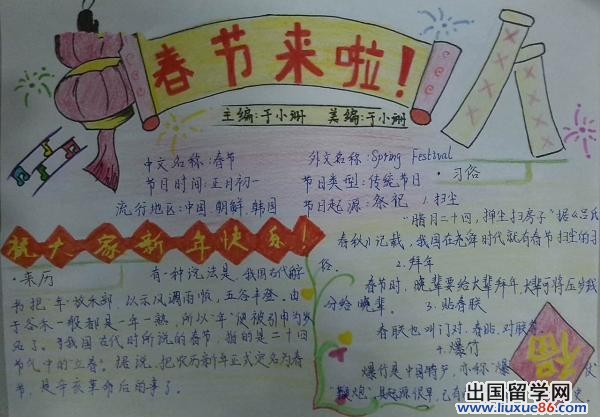 春节来啦！
主编：于小珊 美编：于小珊
中文名称：春节
节日时间：正月初一
流行地区：中国、朝鲜、韩国
外文名称：Spring Festival
节日类型：传统节日
节日起源：祭祀
祝大家新年快乐！
·来历
有一种说法是，我国古代的字
书把"年"放禾部，以示风调雨顺，五谷丰登。由
于谷禾一般都是一年一熟，所以"年"便被引申为岁
名了。我国古代时所说的春节，指的是二十四
节气中的"立春"。据说，把农历新年正式定名为春
节，是辛亥革命后的事了。
·习俗
1.扫尘
"腊月二十四，掸尘扫房子"据《吕氏
春秋》记载，我国在尧舜时代就有春节扫尘的习
俗。
2.拜年
春节时，晚辈要给长辈拜年，长辈可将压岁钱
分给晚辈。
3.贴春联
春联也叫门对、春贴、对联
4.爆竹
爆竹是中国特产，亦称"爆
"鞭炮"。其起源很早，已有
福
出国留学网
www.liuxue86.com